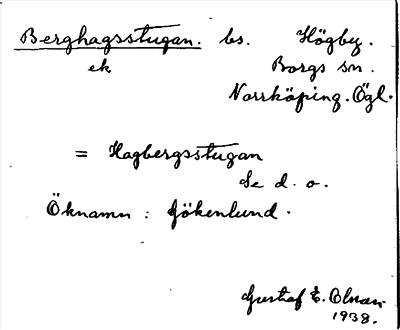 Berghagsstugan. bs. Högby.
ek Borgs sn.
Norrköping. Ögl.
= Hagbergsstugan
Se d. o.
Öknamn : Gökenlund.
Gustaf E. Olman
1938.